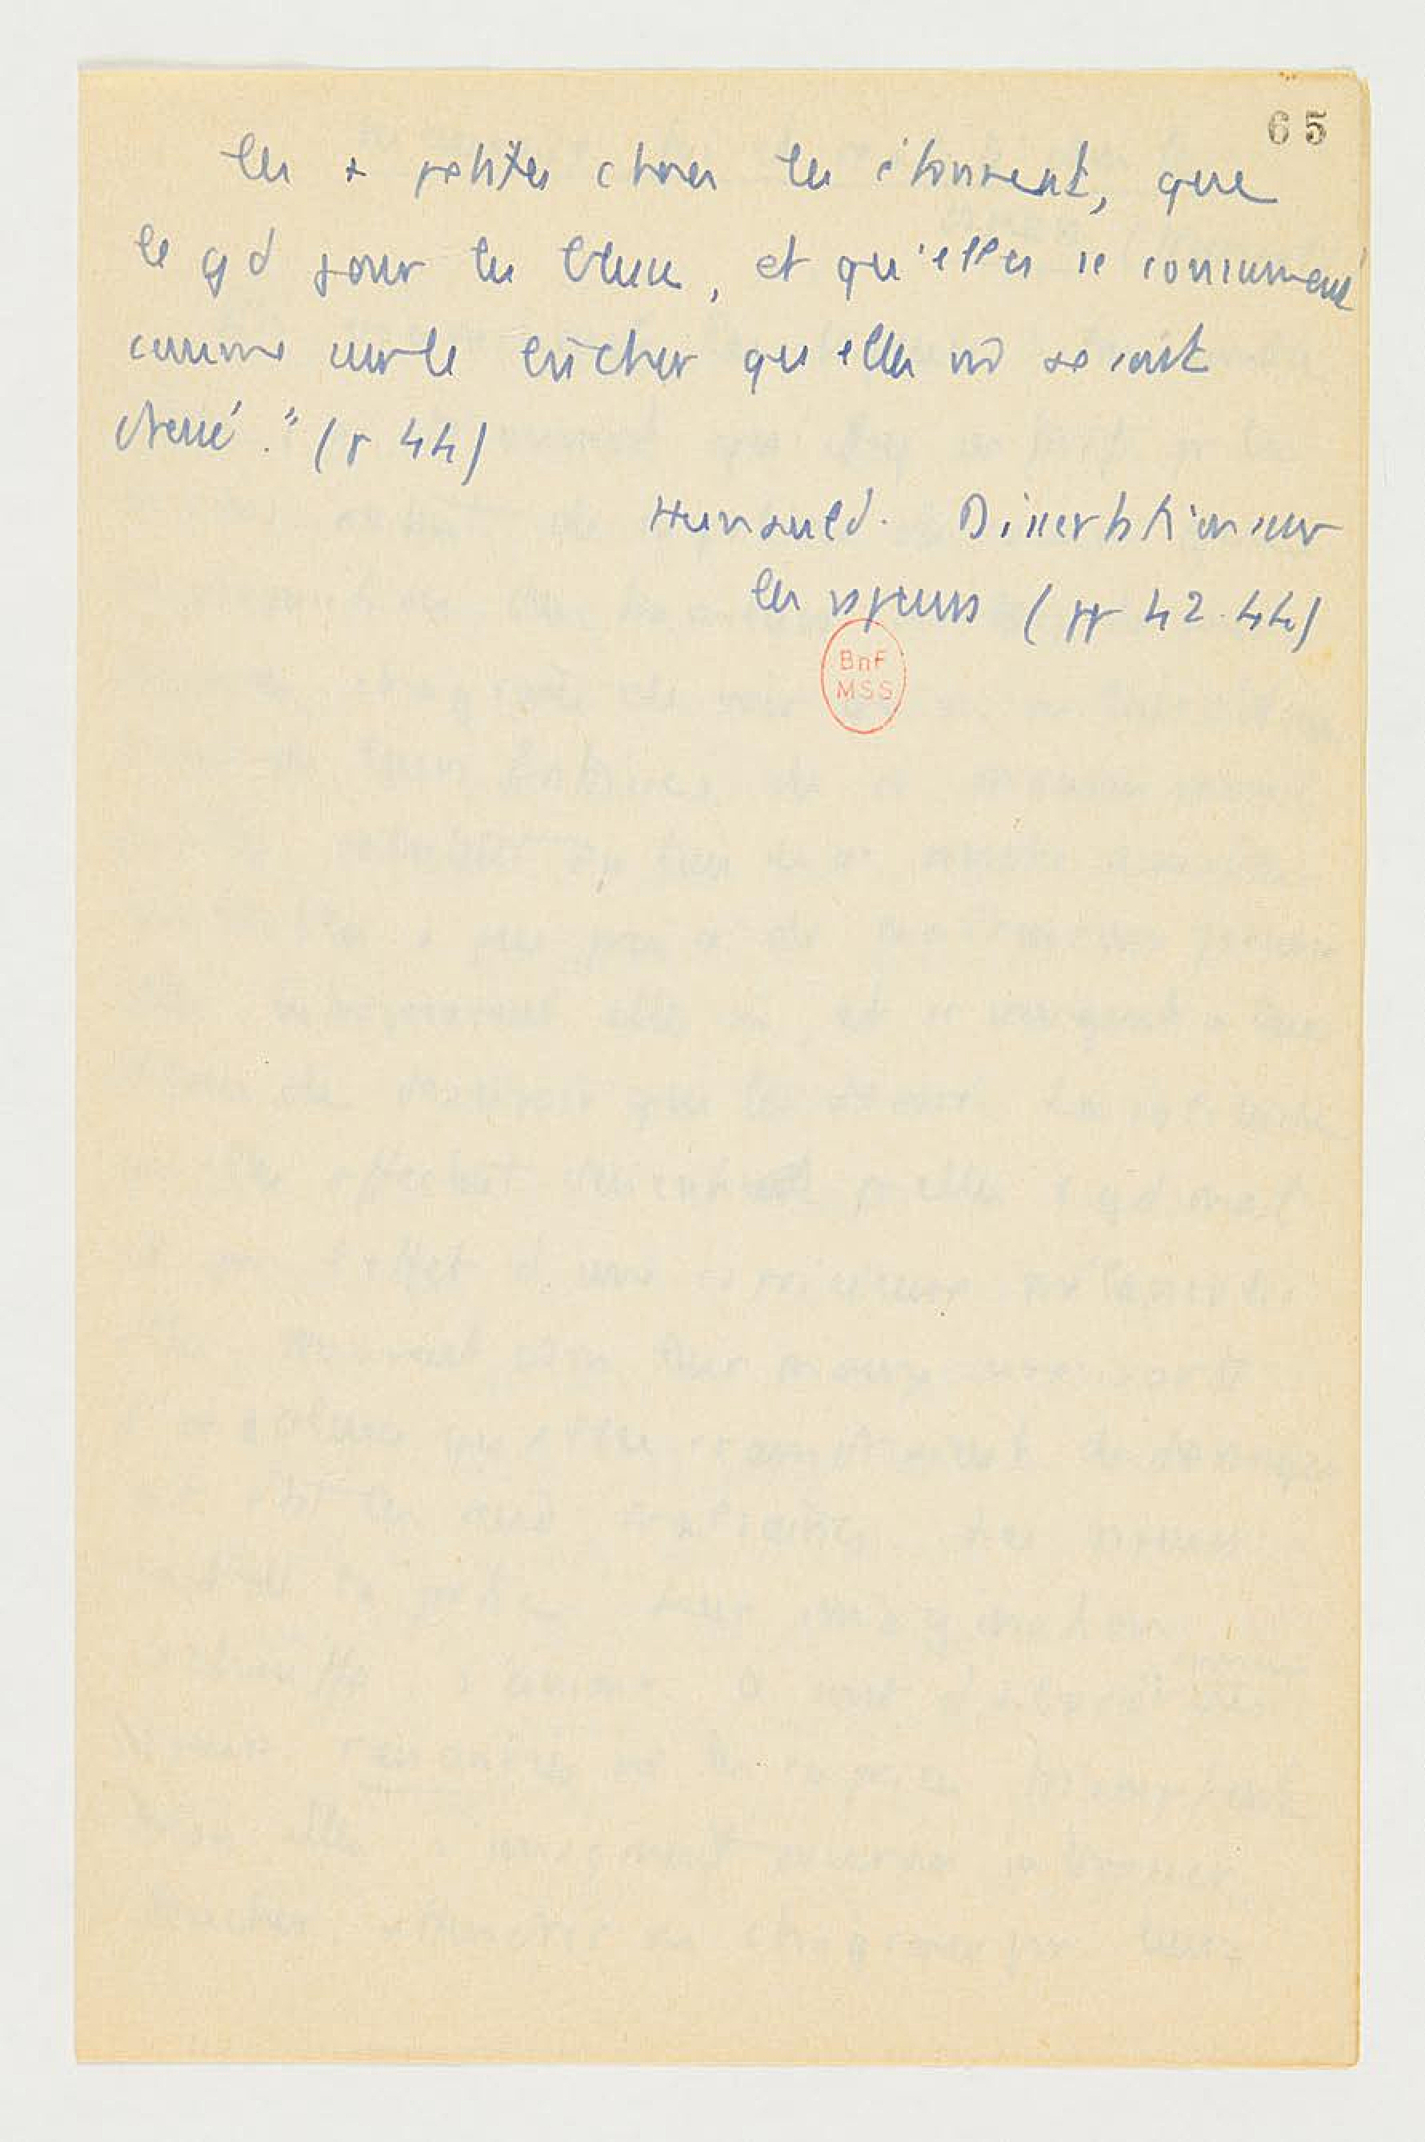 65
les + petites choses les étonnent, que
le gd jour les blesse, et qu'elles se consument
comme sur le bûcher qu'elles se sont
dressé." (p 44)
Hunauld. Dissertation sur
les vapeurs (pp 42-44)
BnF
MSS